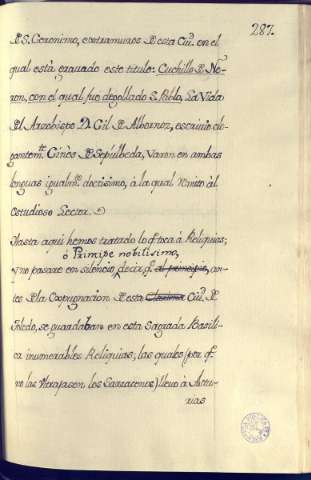 287.
D S. Geronimo, extramuros D esta Ciu. en el
qual està gravado este titulo: Cuchillo D Ne-
ron, con el qual fue degollado S. Pablo. La Vida
Dl Arzobispo D. Gil D Albornoz, escrivio ele-
gantemte. Ginès D Sepúlbeda, Varon en ambas
lenguas igualmte. doctissimo, à la qual remito àl
estudioso Lector.
Hasta aqui hemos tratado lo q̃ toca à Reliquias;
ò Principe nobilisimo,
y no pasarè en silencio, decir q̃. al principio, an-
tes D la Coopugnacion D esta Ciu. D
Toledo, se guardaban en esta Sagrada Basili-
ca inumerables Reliquias; las quales (por q̃
no las Ultrajasen los Sarracenos) llevo à Astu-
rias